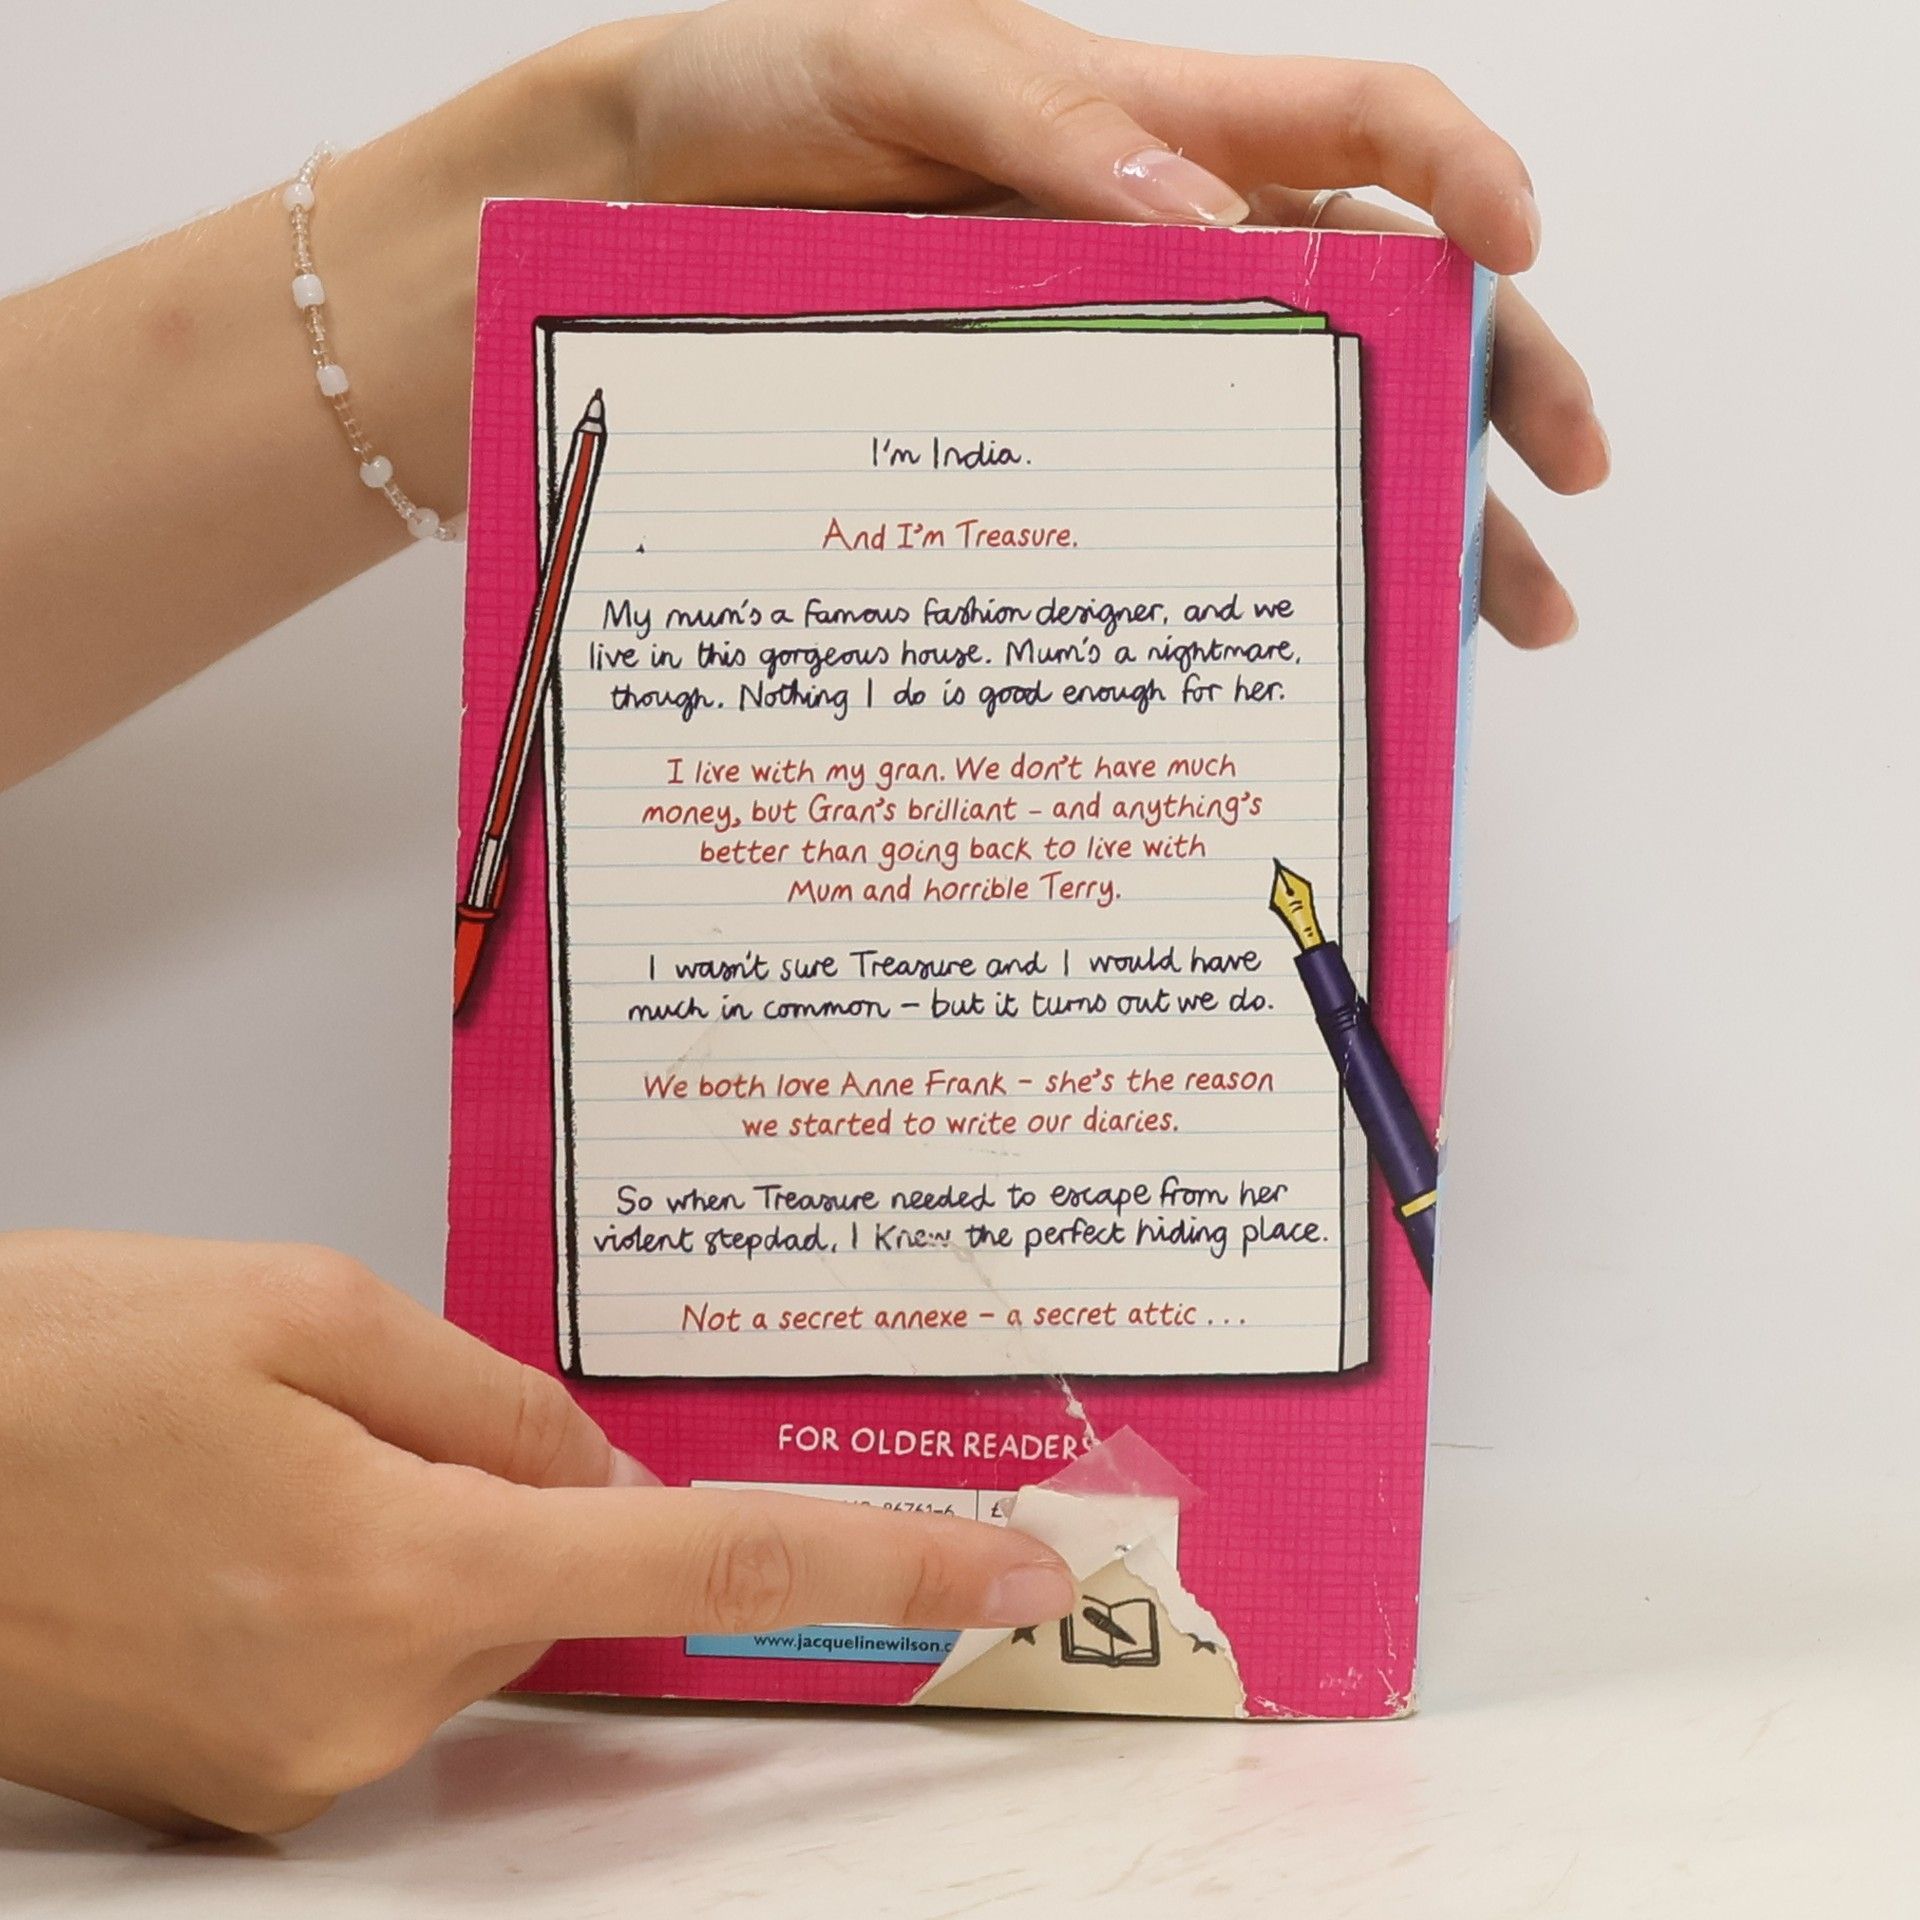 I'm India.
And I'm Treasure.
My mum's a famous fashion designer, and we
live in this gorgeous house. Mum's a nightmare,
though. Nothing I do is good enough for her.
I live with my gran. We don't have much
money, but Gran's brilliant – and anything's
better than going back to live with
Mum and horrible Terry.
I wasn't sure Treasure and I would have
much in common – but it turns out we do.
We both love Anne Frank – she's the reason
we started to write our diaries.
So when Treasure needed to escape from her
violent stepdad, I knew the perfect hiding place.
Not a secret annexe – a secret attic ...
FOR OLDER READERS
86761-6 £
www.jacquelinewilson.c